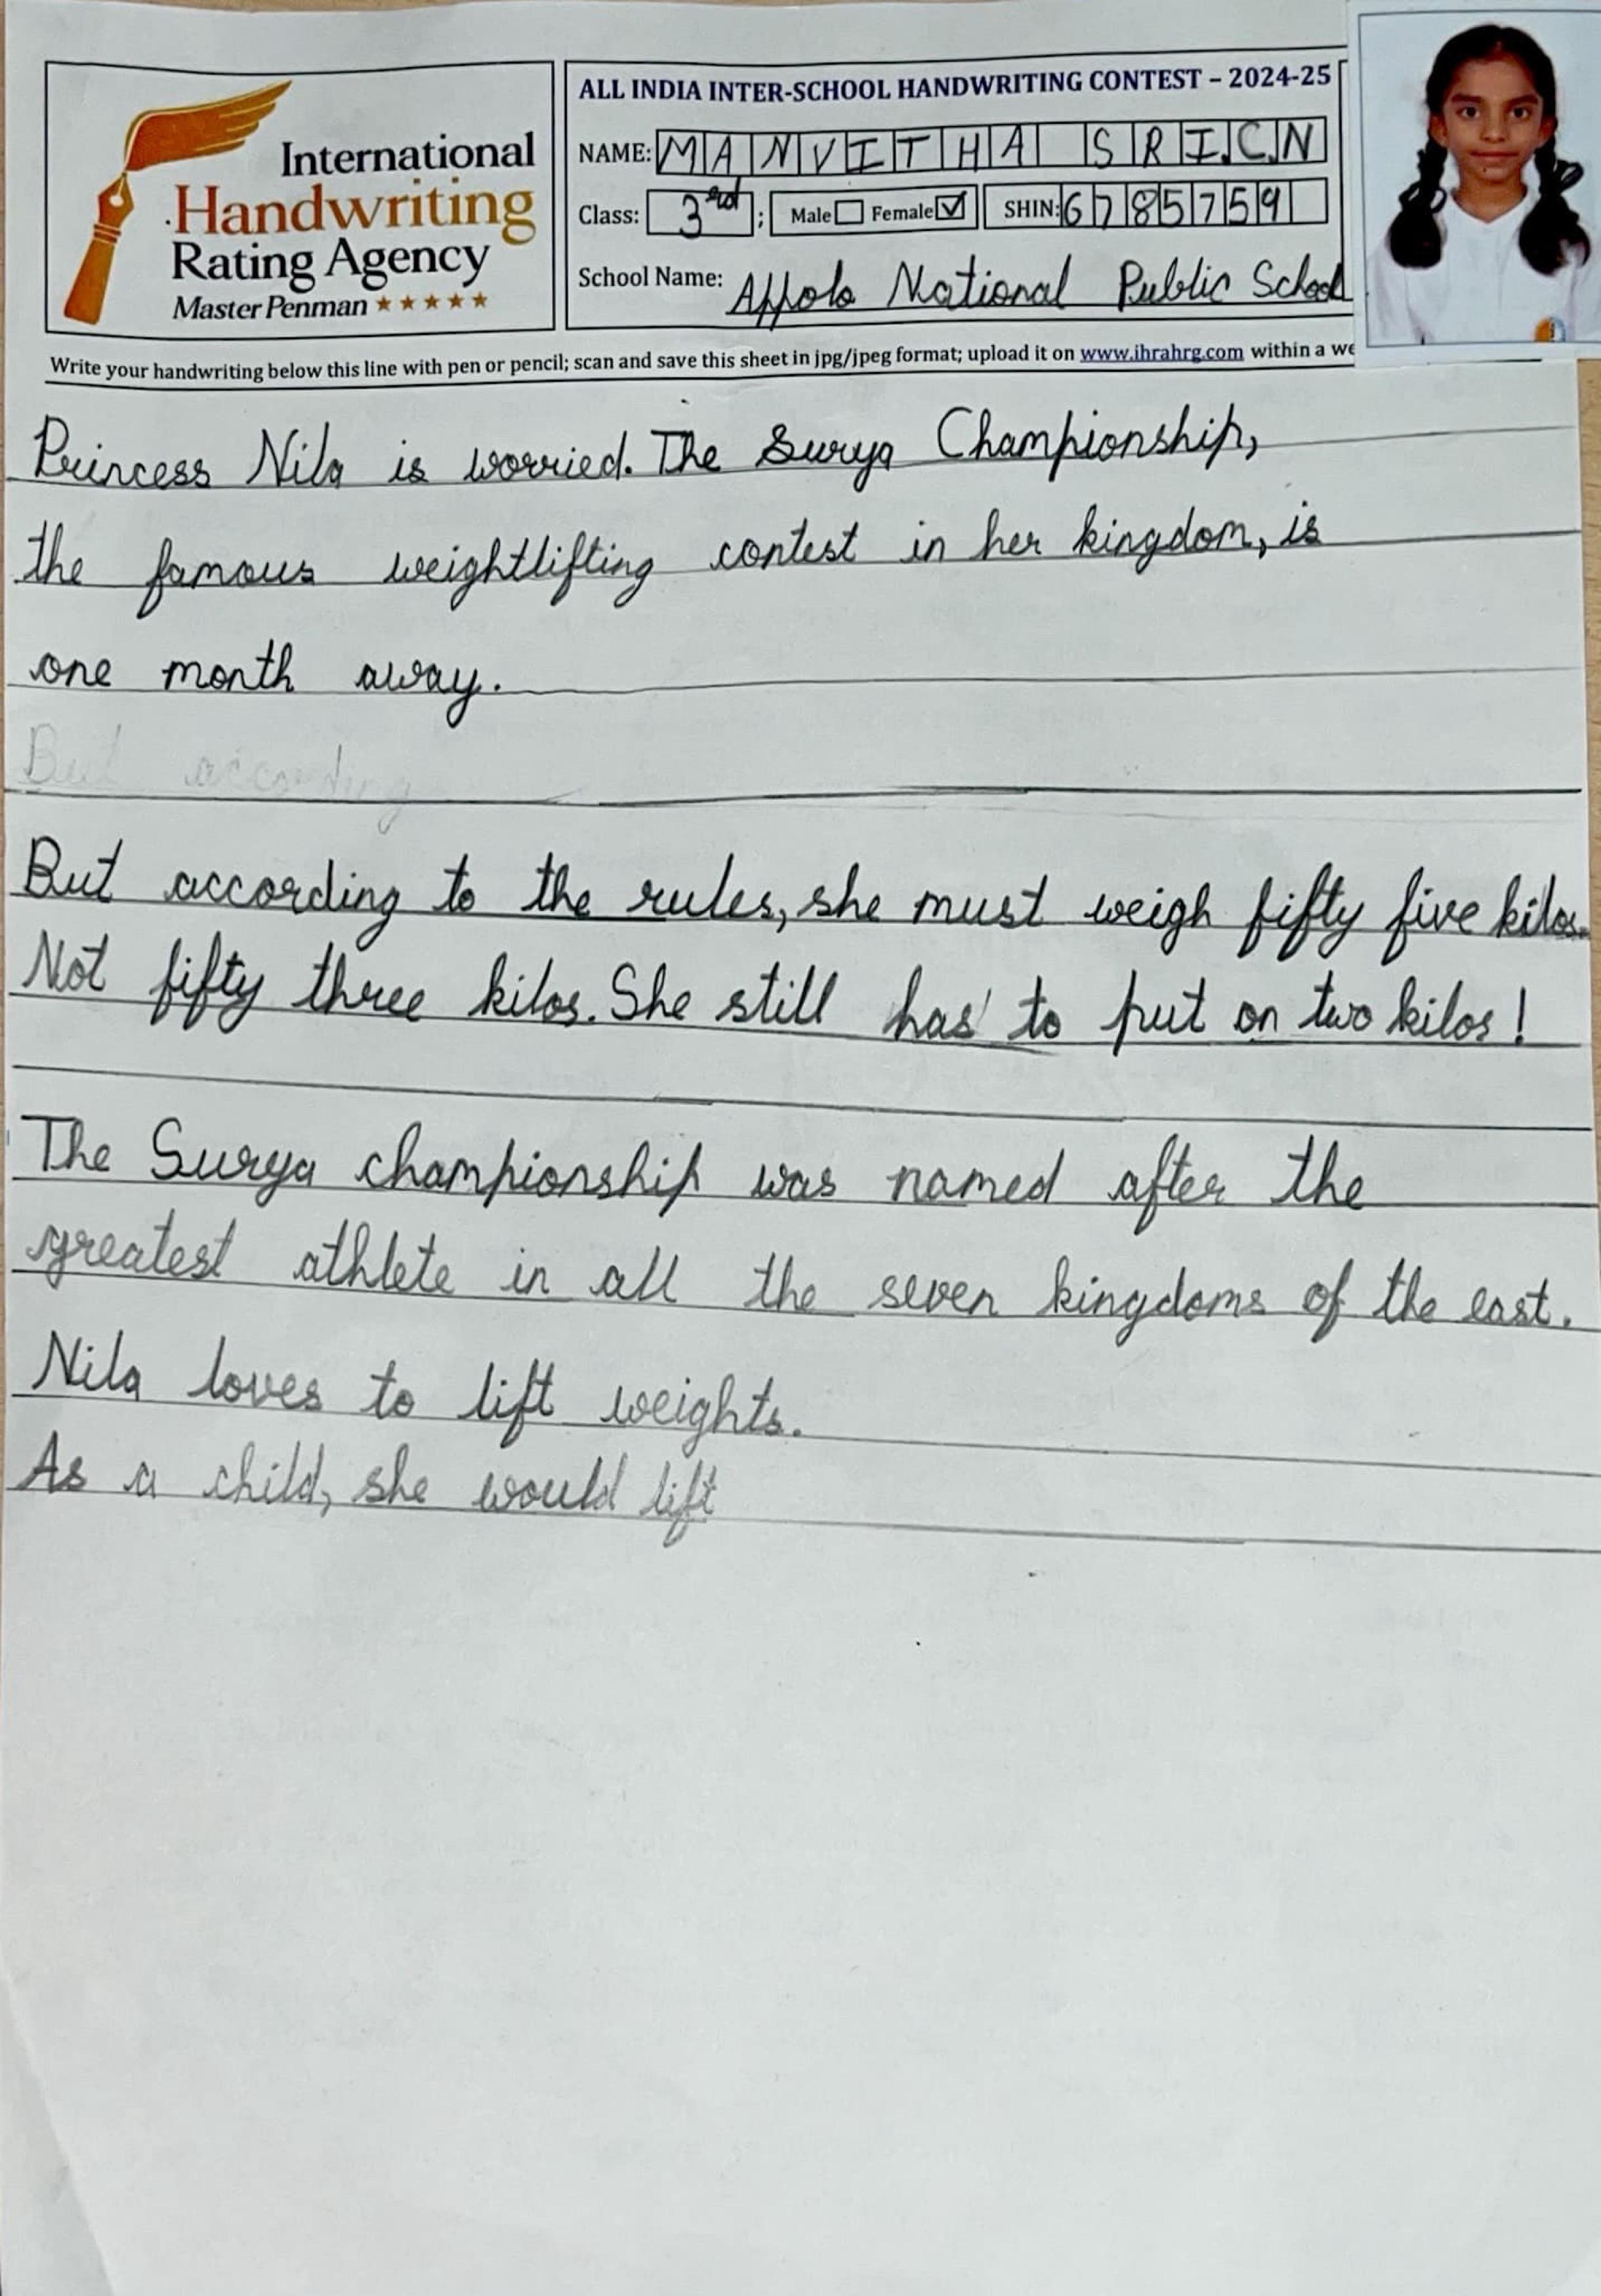 International
Handwriting
Rating Agency
Master Penman ★★★★★
ALL INDIA INTER-SCHOOL HANDWRITING CONTEST – 2024-25
NAME: MANVITHA SRI.C.N
Class: 3rd ; Male ☐ Female ☑ SHIN: 6785759
School Name: Appolo National Public School
Write your handwriting below this line with pen or pencil; scan and save this sheet in jpg/jpeg format; upload it on www.ihrahrg.com within a we
Princess Nila is worried. The Surya Championship,
the famous weightlifting contest in her kingdom, is
one month away.
But according
But according to the rules, she must weigh fifty five kilos.
Not fifty three kilos. She still has to put on two kilos!
The Surya championship was named after the
greatest athlete in all the seven kingdoms of the east.
Nila loves to lift weights.
As a child, she would lift